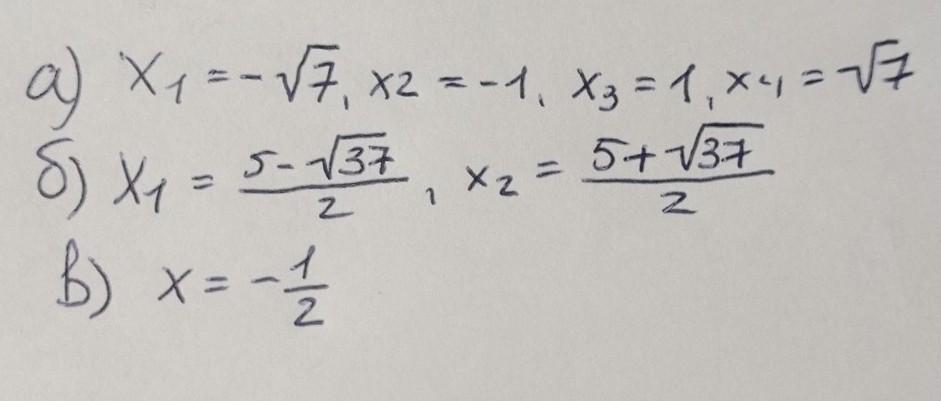 а) x₁ = -√7, x2 = -1, x₃ = 1, x₄ = √7
б) x₁ = (5-√37)/2, x₂ = (5+√37)/2
в) x = -1/2